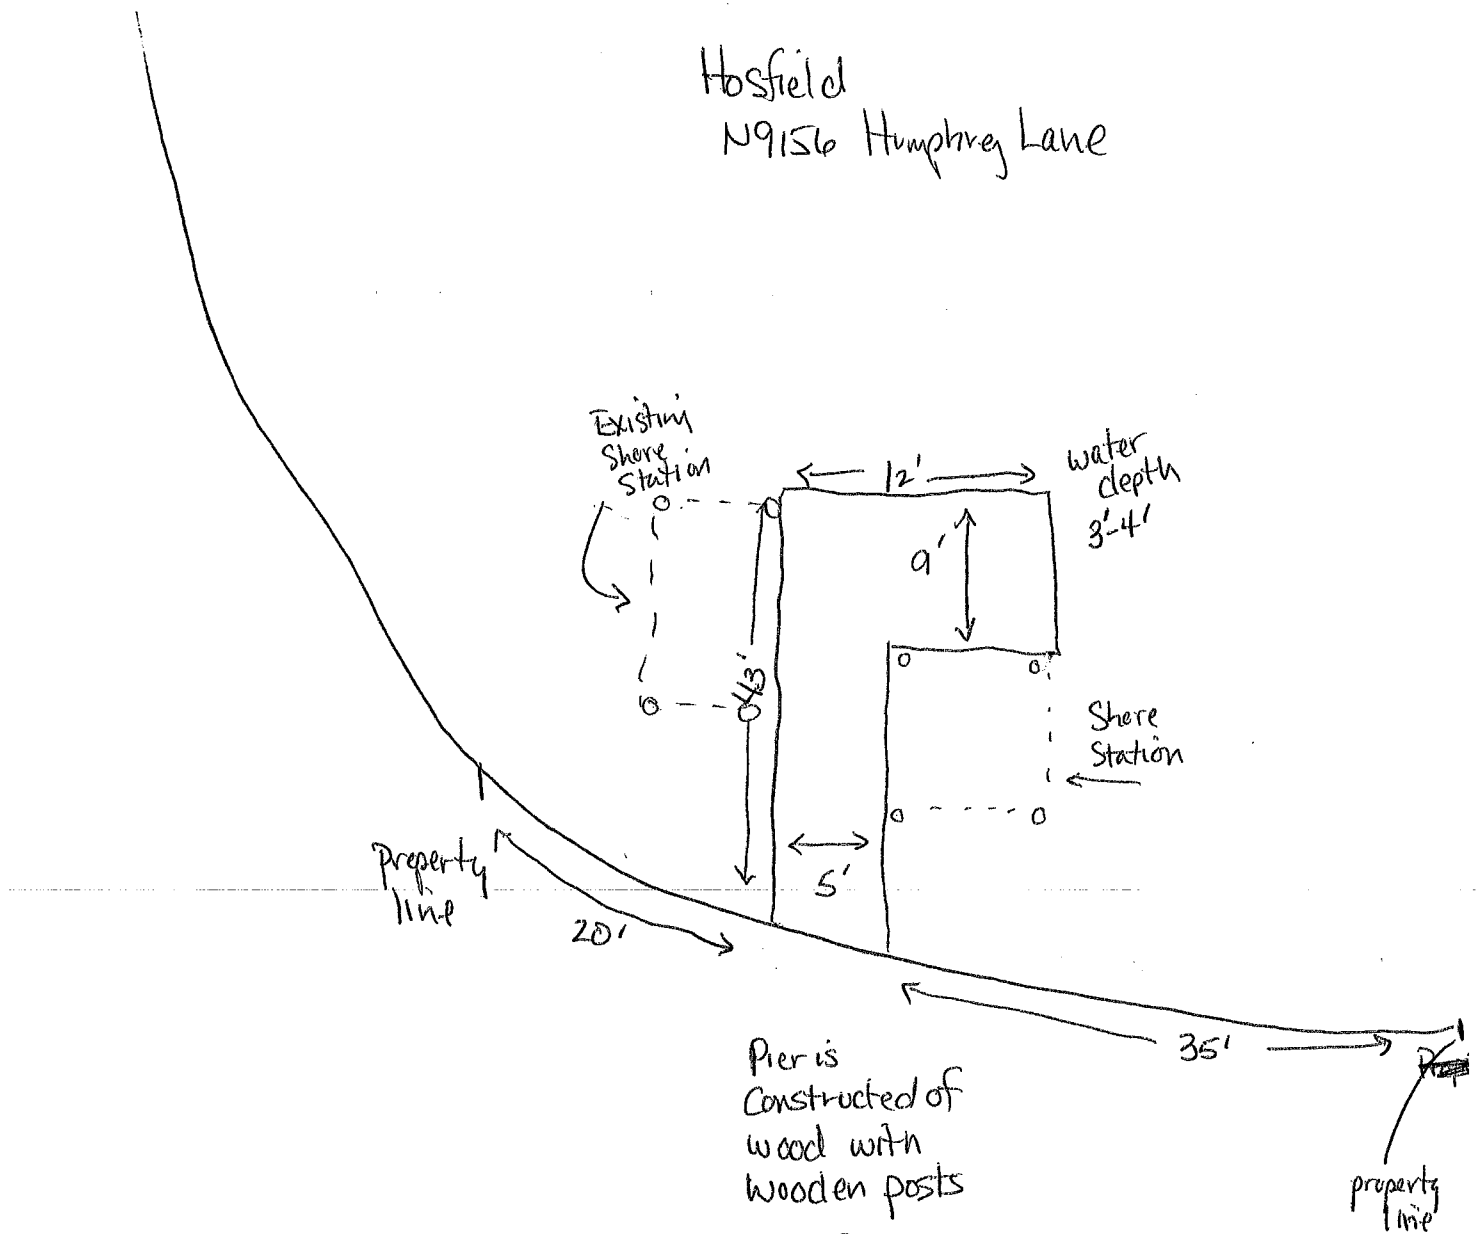 Hosfield
N9156 Humphrey Lane
Existing
Shore
Station
12'
water
depth
3'-4'
9'
43'
Shore
Station
5'
Property
line
20'
35'
Pier is
Constructed of
wood with
wooden posts
property
line